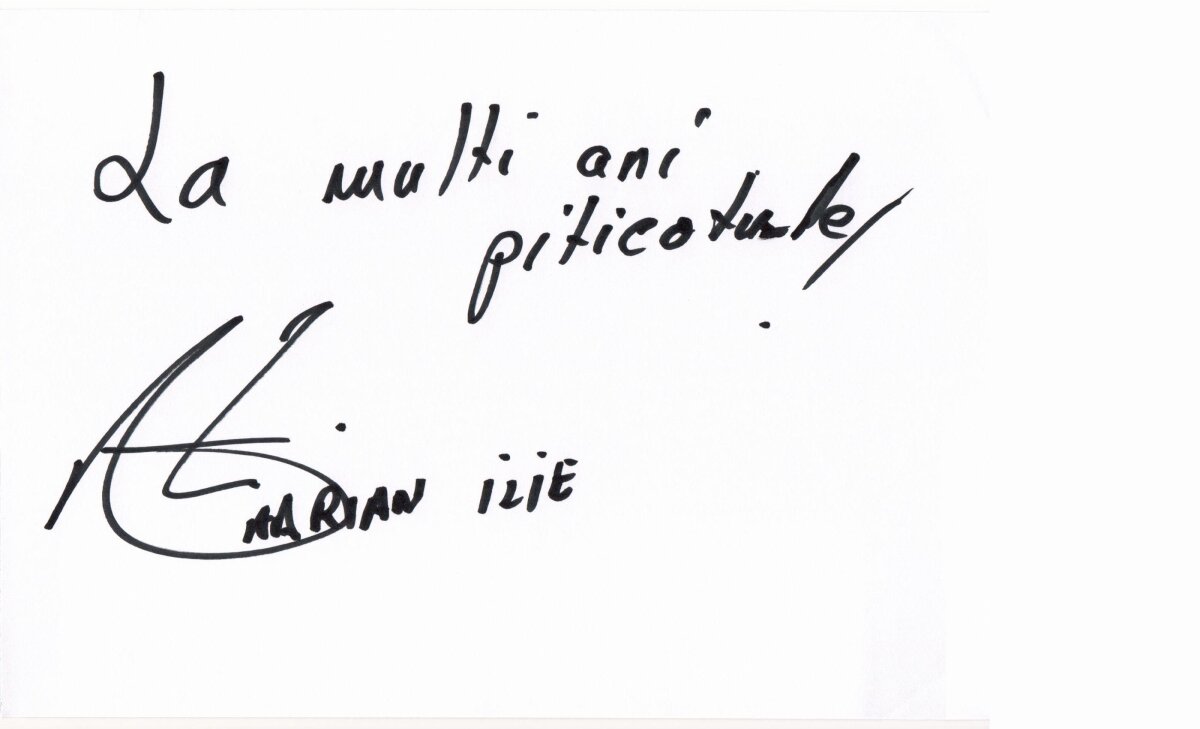 La multi ani
piticotule
MARIAN ILIE